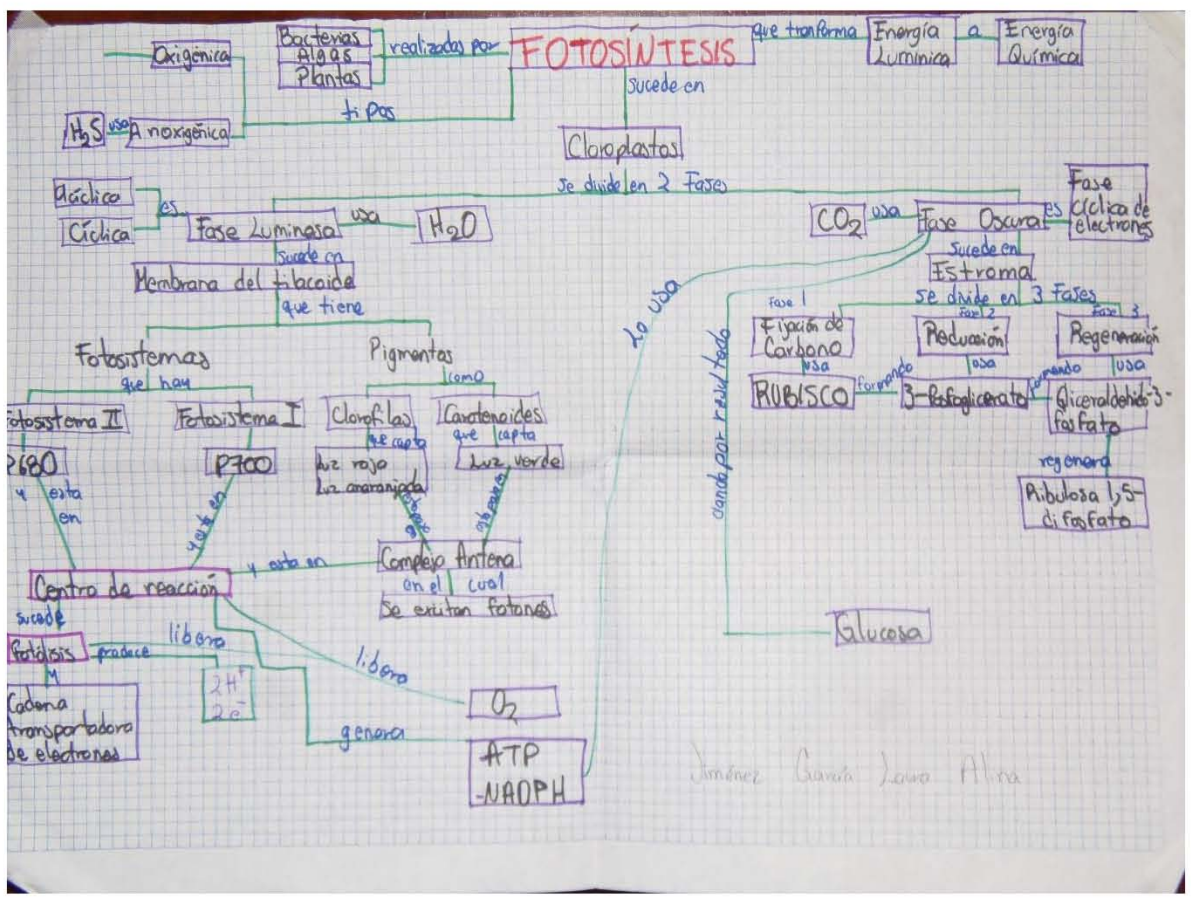 FOTOSÍNTESIS
realizadas por
Bacterias
Algas
Plantas
que tranforma
Energía
Lumínica
a
Energía
Química
tipos
Oxigénica
Anoxigénica
usa
H₂S
sucede en
Cloroplastos
se divide en 2 Fases
Fase Luminosa
es
Acíclica
Cíclica
usa
H₂O
sucede en
Membrana del tilacoide
que tiene
Fotosistemas
que hay
Fotosistema II
Fotosistema I
P680
P700
y esta
en
y está en
Pigmentos
como
Clorofilas
que capta
Luz roja
Luz anaranjada
Carotenoides
que capta
Luz verde
Complejo Antena
en el cual
Se exitan fotones
y esta en
Centro de reacción
sucede
Fotólisis
produce
2H⁺
2e⁻
libera
y
Cadena
transportadora
de electrones
libera
O₂
genera
ATP
-NADPH
Lo usa
Fase Oscura
usa
CO₂
es
Fase
cíclica de
electrones
sucede en
Estroma
se divide en 3 Fases
Fase 1
Fijación de
Carbono
usa
RUBISCO
formando
Fase 2
Reducción
usa
3-fosfoglicerato
formando
Fase 3
Regeneración
usa
Gliceraldehido-3-
fosfato
regenera
Ribulosa 1,5-
difosfato
dando por resultado
Glucosa
Jiménez García Laura Alina